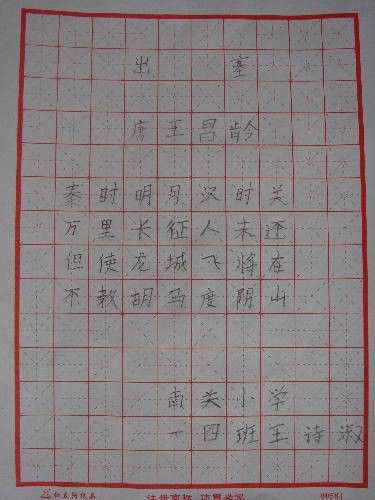 出 塞
唐 王 昌 龄
秦 时 明 月 汉 时 关
万 里 长 征 人 未 还
但 使 龙 城 飞 将 在
不 教 胡 马 度 阴 山
南 关 小 学
一 四 班 王 诗 淑
注册商标 仿冒必究 00581